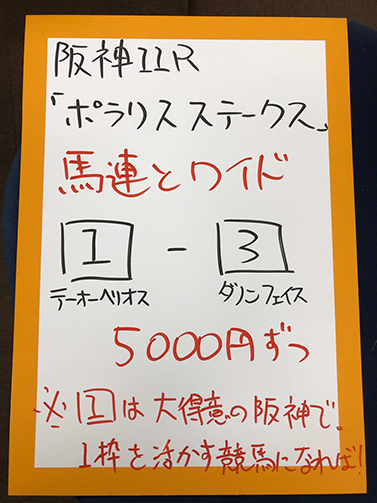 阪神11R
「ポラリスステークス」
馬連とワイド
1 - 3
テーオーヘリオス ダノンフェイス
5000円ずつ
※1は大得意の阪神で、
1枠を活かす競馬になれば!